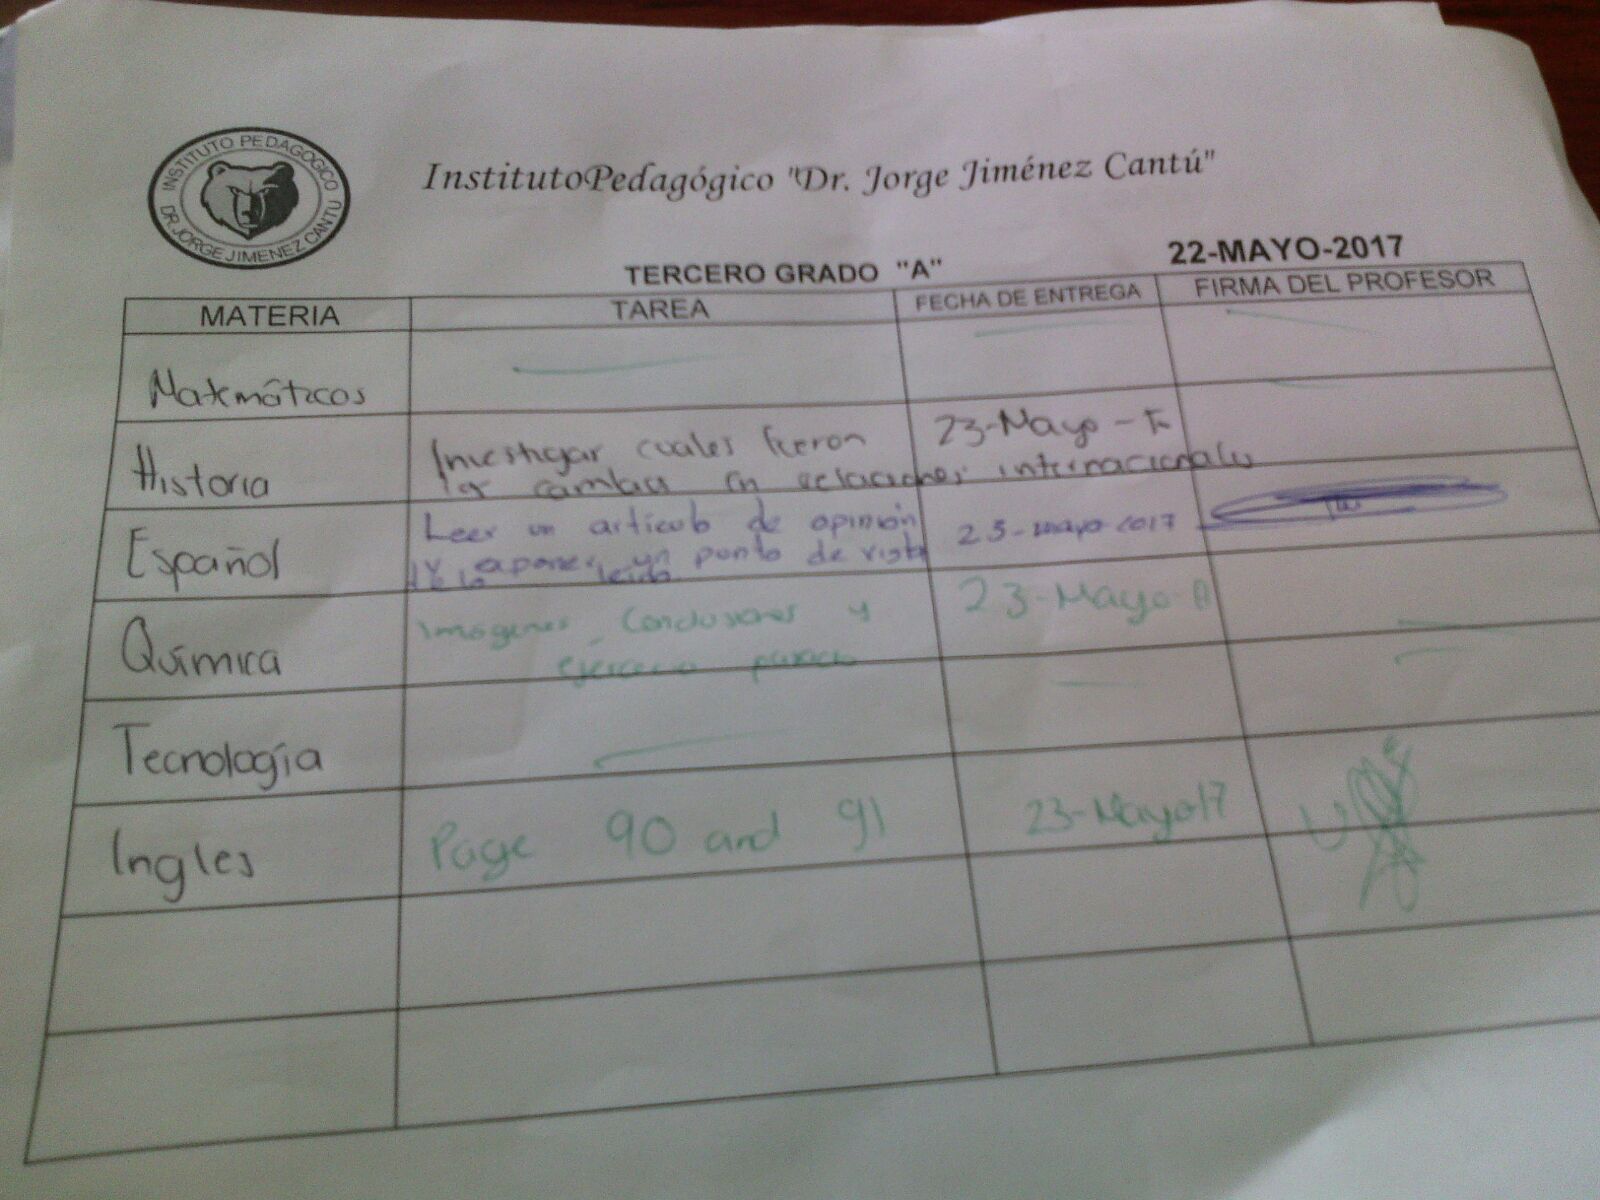 INSTITUTO PEDAGOGICO
DR. JORGE JIMENEZ CANTU
InstitutoPedagógico "Dr. Jorge Jiménez Cantú"
22-MAYO-2017
TERCERO GRADO "A"
MATERIA TAREA FECHA DE ENTREGA FIRMA DEL PROFESOR
Matemáticas
Historia Investigar cuales fueron 23-Mayo-
los cambios en relaciones internacionales
Español Leer un artículo de opinión 23-mayo-2017
y un punto de vista
de lo leído
Química Imágenes, Conclusiones y 23-Mayo-
ejercicio
Tecnología
Ingles Page 90 and 91 23-Mayo17